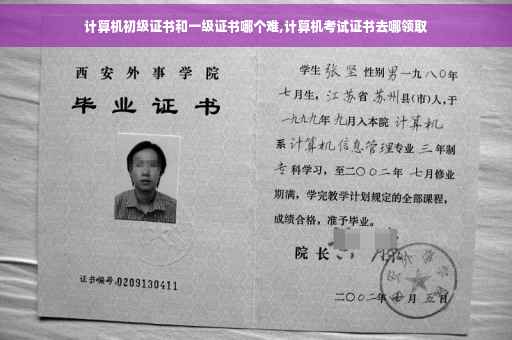 计算机初级证书和一级证书哪个难,计算机考试证书去哪领取
西安外事学院
毕业证书
证书编号:0209130411
学生 张坚 性别 男 一九八〇年
七月生，江苏省 苏州 县(市)人,于
一九九九年 九月入本院 计算机
系 计算机信息管理 专业 三 年制
专 科学习，至二〇〇二年 七月修业
期满，学完教学计划规定的全部课程，
成绩合格，准予毕业。
院长
二〇〇二年 七 月 五 日